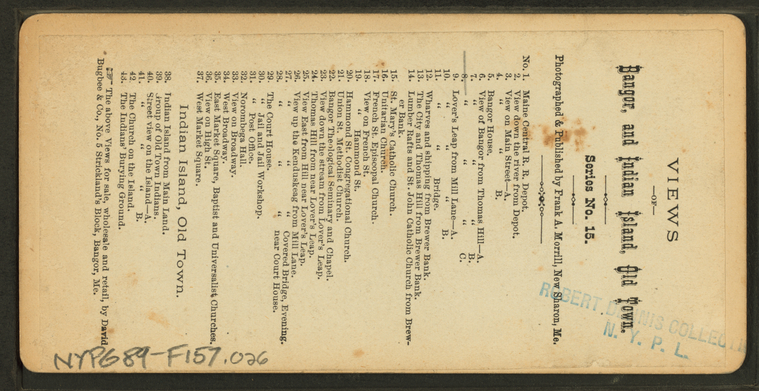 VIEWS
—OF—
Bangor, and Indian Island, Old Town.
Series No. 15.
Photographed & Published by Frank A. Morrill, New Sharon, Me.
No. 1. Maine Central R. R. Depot.
2. View down the river from Depot.
3. View on Main Street—A.
4. " " " " B.
5. Bangor House.
6. View of Bangor from Thomas Hill—A.
7. " " " " " B.
8. " " " " " C.
9. Lover's Leap from Mill Lane—A.
10. " " " " " B.
11. " " " Bridge.
12. Wharves and shipping from Brewer Bank.
13. The City and Thomas Hill from Brewer Bank.
14. Lumber Rafts and St. John Catholic Church from Brew-
er Bank.
15. St. Mary's Catholic Church.
16. Unitarian Church.
17. French St. Episcopal Church.
18. View on French St.
19. " " Hammond St.
20. Hammond St. Congregational Church.
21. Union St. Methodist Church.
22. Bangor Theological Seminary and Chapel.
23. View down the stream from Lover's Leap.
24. Thomas Hill from near Lover's Leap.
25. View East from Hill near Lover's Leap.
26. View up the Kenduskeag from Mill Lane.
27. " " " " Covered Bridge, Evening.
28. " " " " near Court House.
29. The Court House.
30. " Jail and Jail Workshop.
31. " Post Office.
32. Norombega Hall.
33. View on Broadway.
34. West Broadway.
35. East Market Square, Baptist and Universalist Churches.
36. View on High St.
37. West Market Square.
Indian Island, Old Town.
38. Indian Island from Main Land.
39. Group of Old Town Indians.
40. Street view on the Island—A.
41. " " " " B.
42. The Church on the Island.
43. The Indians' Burying Ground.
☞ The above Views for sale, wholesale and retail, by David
Bugbee & Co., No. 5 Strickland's Block, Bangor, Me.
ROBERT DENNIS COLLECTION
N. Y. P. L.
NYPG89-F157.026